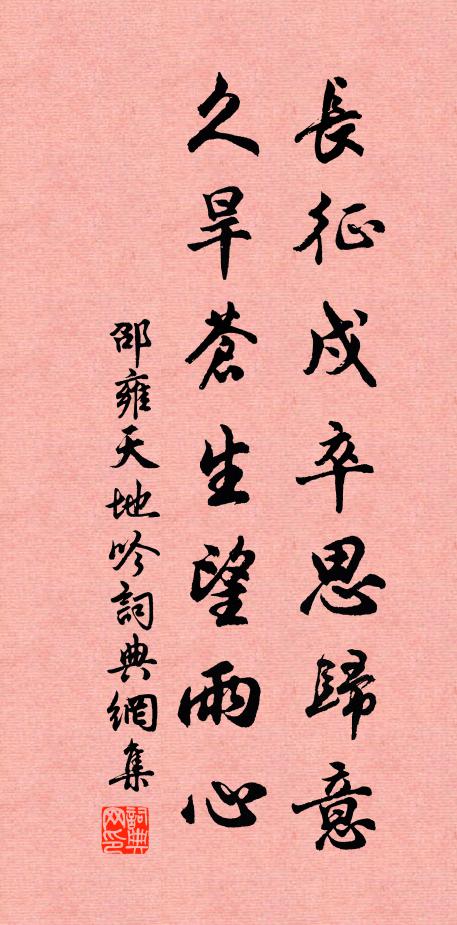 長征戍卒思歸意
久旱蒼生望雨心
邵雍天地吟詞典網集
詞典
网印